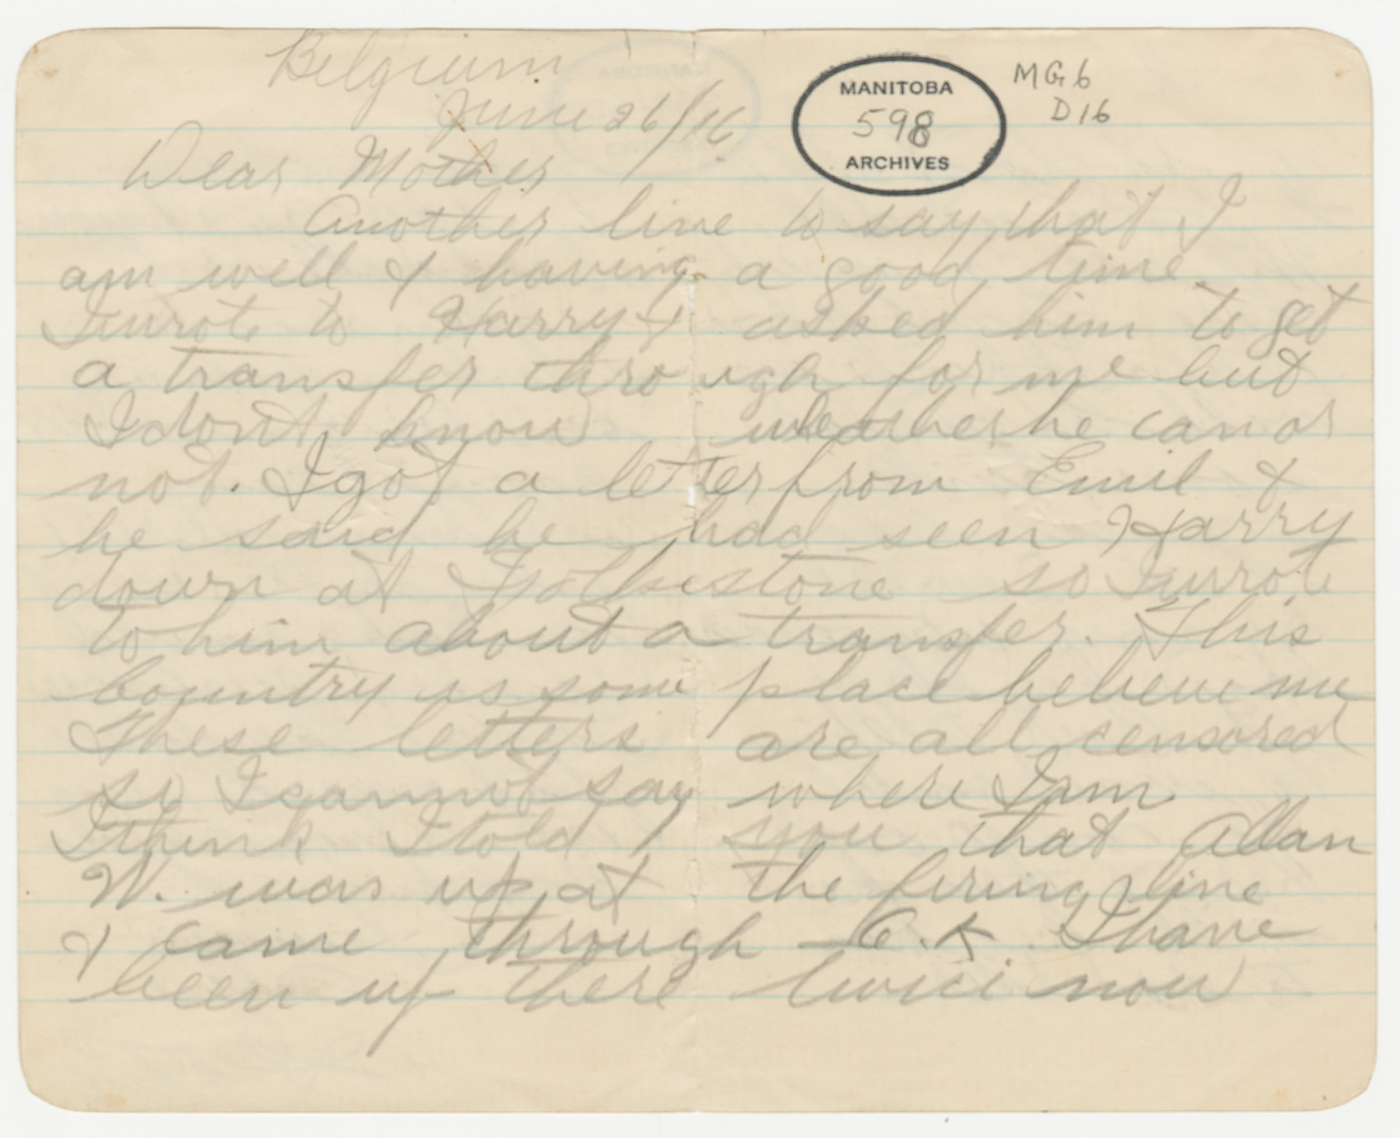 Belgium
June 26/16
MANITOBA
598
ARCHIVES
MG6
D16
Dear Mother
Another line to say that I
am well & having a good time
I wrote to Harry & asked him to get
a transfer through for me but
I dont know wheather he can or
not. I got a letter from Emil &
he said he had seen Harry
down at Folkestone so I wrote
to him about a transfer. This
country is some place believe me
These letters are all censored
so I cannot say where I am
I think I told you that Allan
W. was up at the firing line
& came through O.K I have
been up there twice now